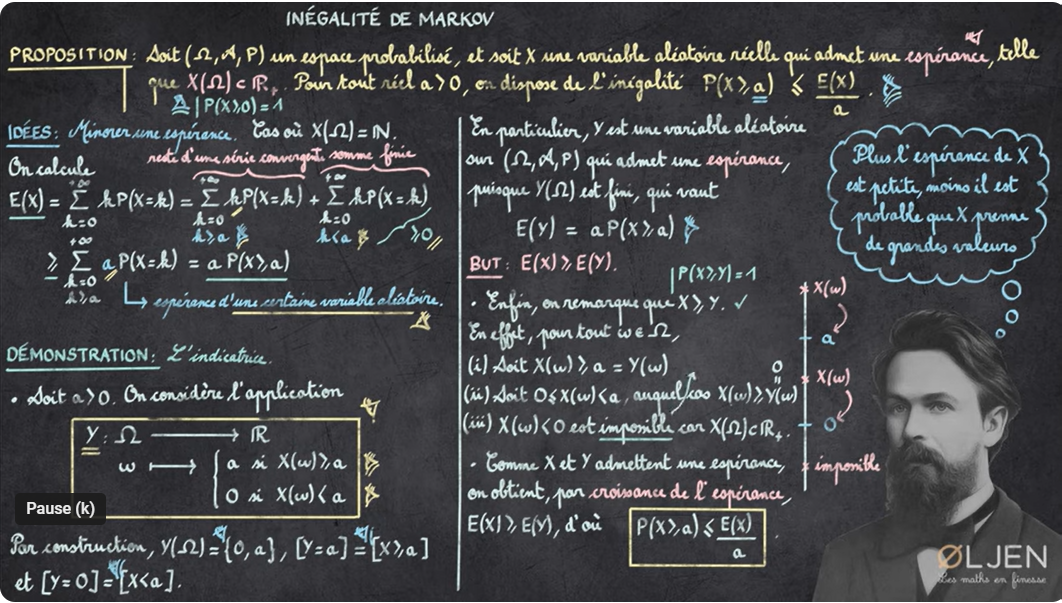 INÉGALITÉ DE MARKOV
PROPOSITION : Soit (Ω, A, P) un espace probabilisé, et soit X une variable aléatoire réelle qui admet une espérance, telle
que X(Ω) ⊂ ℝ₊. Pour tout réel a > 0, on dispose de l'inégalité P(X ⩾ a) ⩽ E(X)/a.
P(X⩾0) = 1
IDÉES : Minorer une espérance. Cas où X(Ω) = ℕ.
On calcule
reste d'une série convergente somme finie
E(X) = ∑_{k=0}^{+∞} kP(X=k) = ∑_{k=0, k⩾a}^{+∞} kP(X=k) + ∑_{k=0, k<a}^{+∞} kP(X=k)
⩾0
⩾ ∑_{k=0, k⩾a}^{+∞} aP(X=k) = aP(X⩾a)
↳ espérance d'une certaine variable aléatoire.
DÉMONSTRATION : L'indicatrice.
• Soit a>0. On considère l'application
Y : Ω ⟶ ℝ
ω ⟼ { a si X(ω)⩾a
0 si X(ω)<a
Pause (k)
Par construction, Y(Ω) = {0, a}, [Y=a] = [X⩾a]
et [Y=0] = [X<a].
En particulier, Y est une variable aléatoire
sur (Ω, A, P) qui admet une espérance,
puisque Y(Ω) est fini, qui vaut
E(Y) = aP(X⩾a)
BUT : E(X) ⩾ E(Y).
P(X⩾Y)=1
• Enfin, on remarque que X⩾Y. ✓
En effet, pour tout ω ∈ Ω,
(i) Soit X(ω) ⩾ a = Y(ω)
(ii) Soit 0⩽X(ω)<a, auquel cas X(ω)⩾Y(ω)
0
=
(iii) X(ω)<0 est impossible car X(Ω)⊂ℝ₊.
• Comme X et Y admettent une espérance,
on obtient, par croissance de l'espérance,
E(X)⩾E(Y), d'où P(X⩾a) ⩽ E(X)/a.
Plus l'espérance de X
est petite, moins il est
probable que X prenne
de grandes valeurs
X(ω)
a
X(ω)
0
impossible
ØLJEN
Les maths en finesse